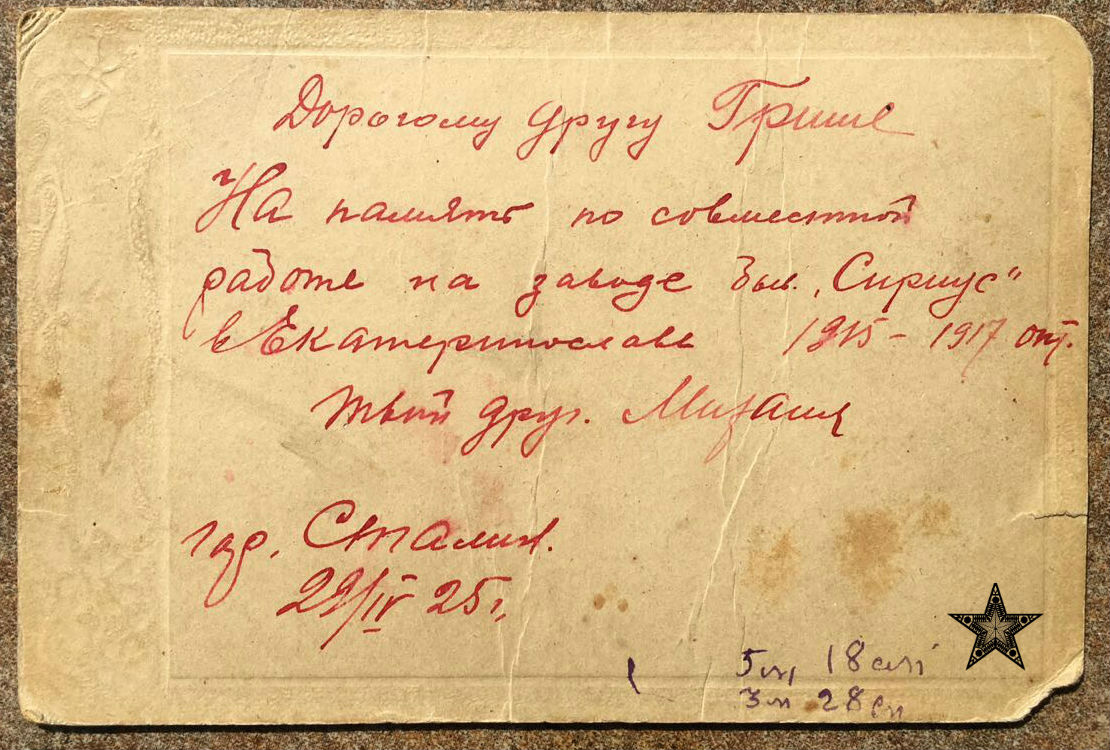 Дорогому другу Грише
На память по совместной
работе на заводе быв. „Сириус"
в Екатеринославе 1915 - 1917
твой друг. Михаил
гор. Сталин.
29/IV 25 г.
5 м 18 см
3 м 28 см